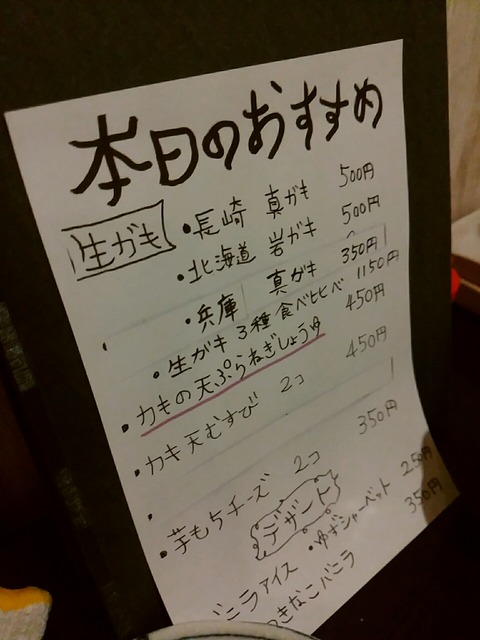 本日のおすすめ
生ガキ
・長崎 真ガキ 500円
・北海道 岩ガキ 500円
・兵庫 真ガキ 350円
・生ガキ3種食べ比べ 1150円
・カキの天ぷらねぎしょうゆ 450円
・カキ天むすび 2コ 450円
・芋もちチーズ 2コ 350円
デザート
バニラアイス ・ゆずシャーベット 250円
きなこバニラ 350円